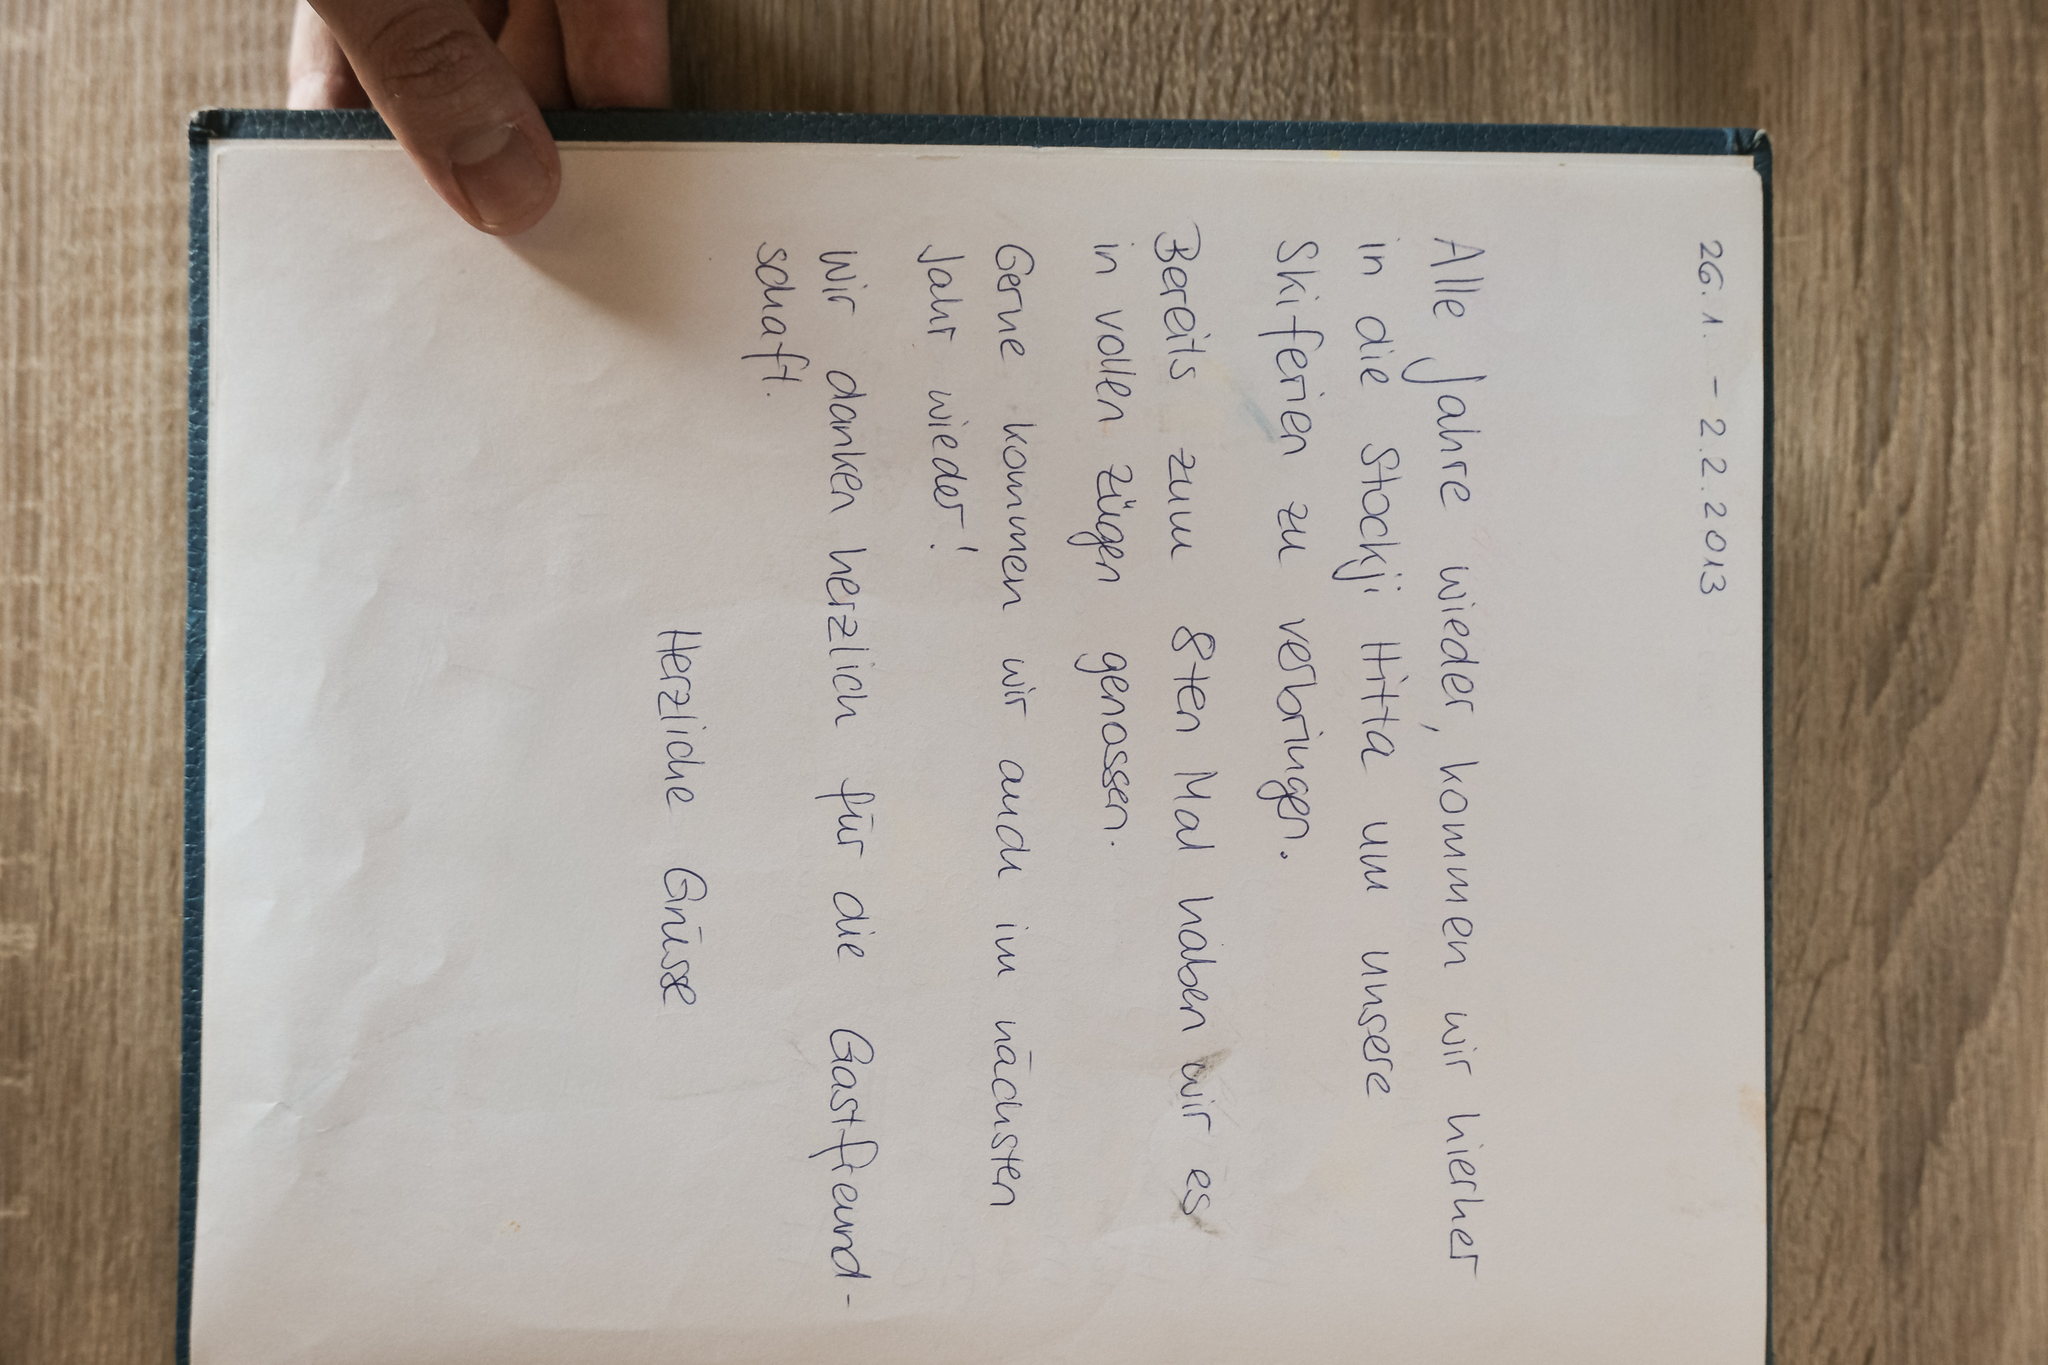 26.1. - 2.2.2013
Alle Jahre wieder, kommen wir hierher
in die Stockji Hitta um unsere
Skiferien zu verbringen.
Bereits zum 8ten Mal haben wir es
in vollen zügen genossen.
Gerne kommen wir auch im nächsten
Jahr wieder!
Wir danken herzlich für die Gastfreund-
schaft.
Herzliche Grüsse